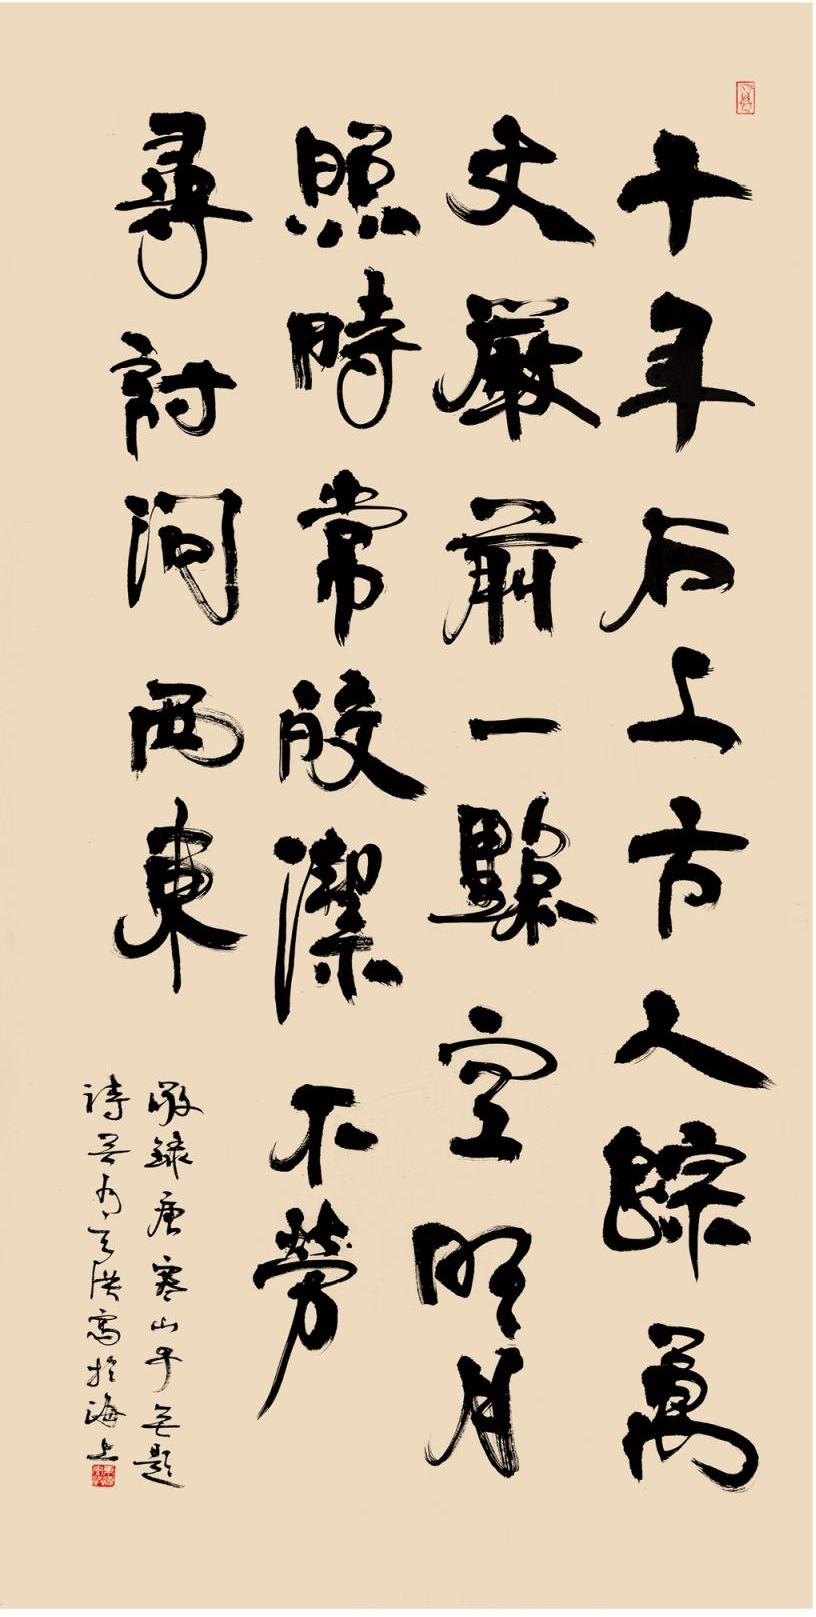 千年石上古人踪萬
丈巖前一點空明月
照時常皎潔不勞
尋討問西東
敬錄唐寒山子無題
詩 洪寫於海上